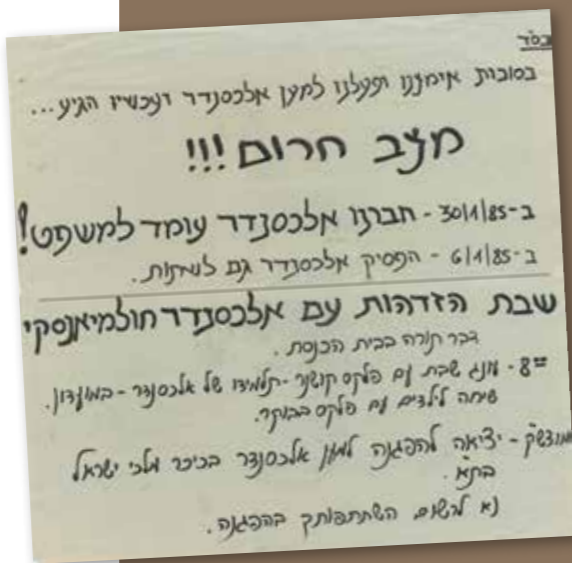 בס"ד
בסוכות אימצנו ופעלנו למען אלכסנדר ועכשיו הגיע...
מצב חרום!!!
ב-30/1/85 - חברנו אלכסנדר עומד למשפט!
ב-6/1/85 - הפסיק אלכסנדר גם לשתות.
שבת הזדהות עם אלכסנדר חולמיאנסקי
דבר תורה בבית הכנסת.
8⁰⁰ - עונג שבת עם פלקס קושנר - תלמידו של אלכסנדר - במועדון.
שיחה לילדים עם פלקס בבוקר.
מוצש"ק - יציאה להפגנה למען אלכסנדר בכיכר מלכי ישראל
בת"א.
נא לרשום השתתפותך בהפגנה.